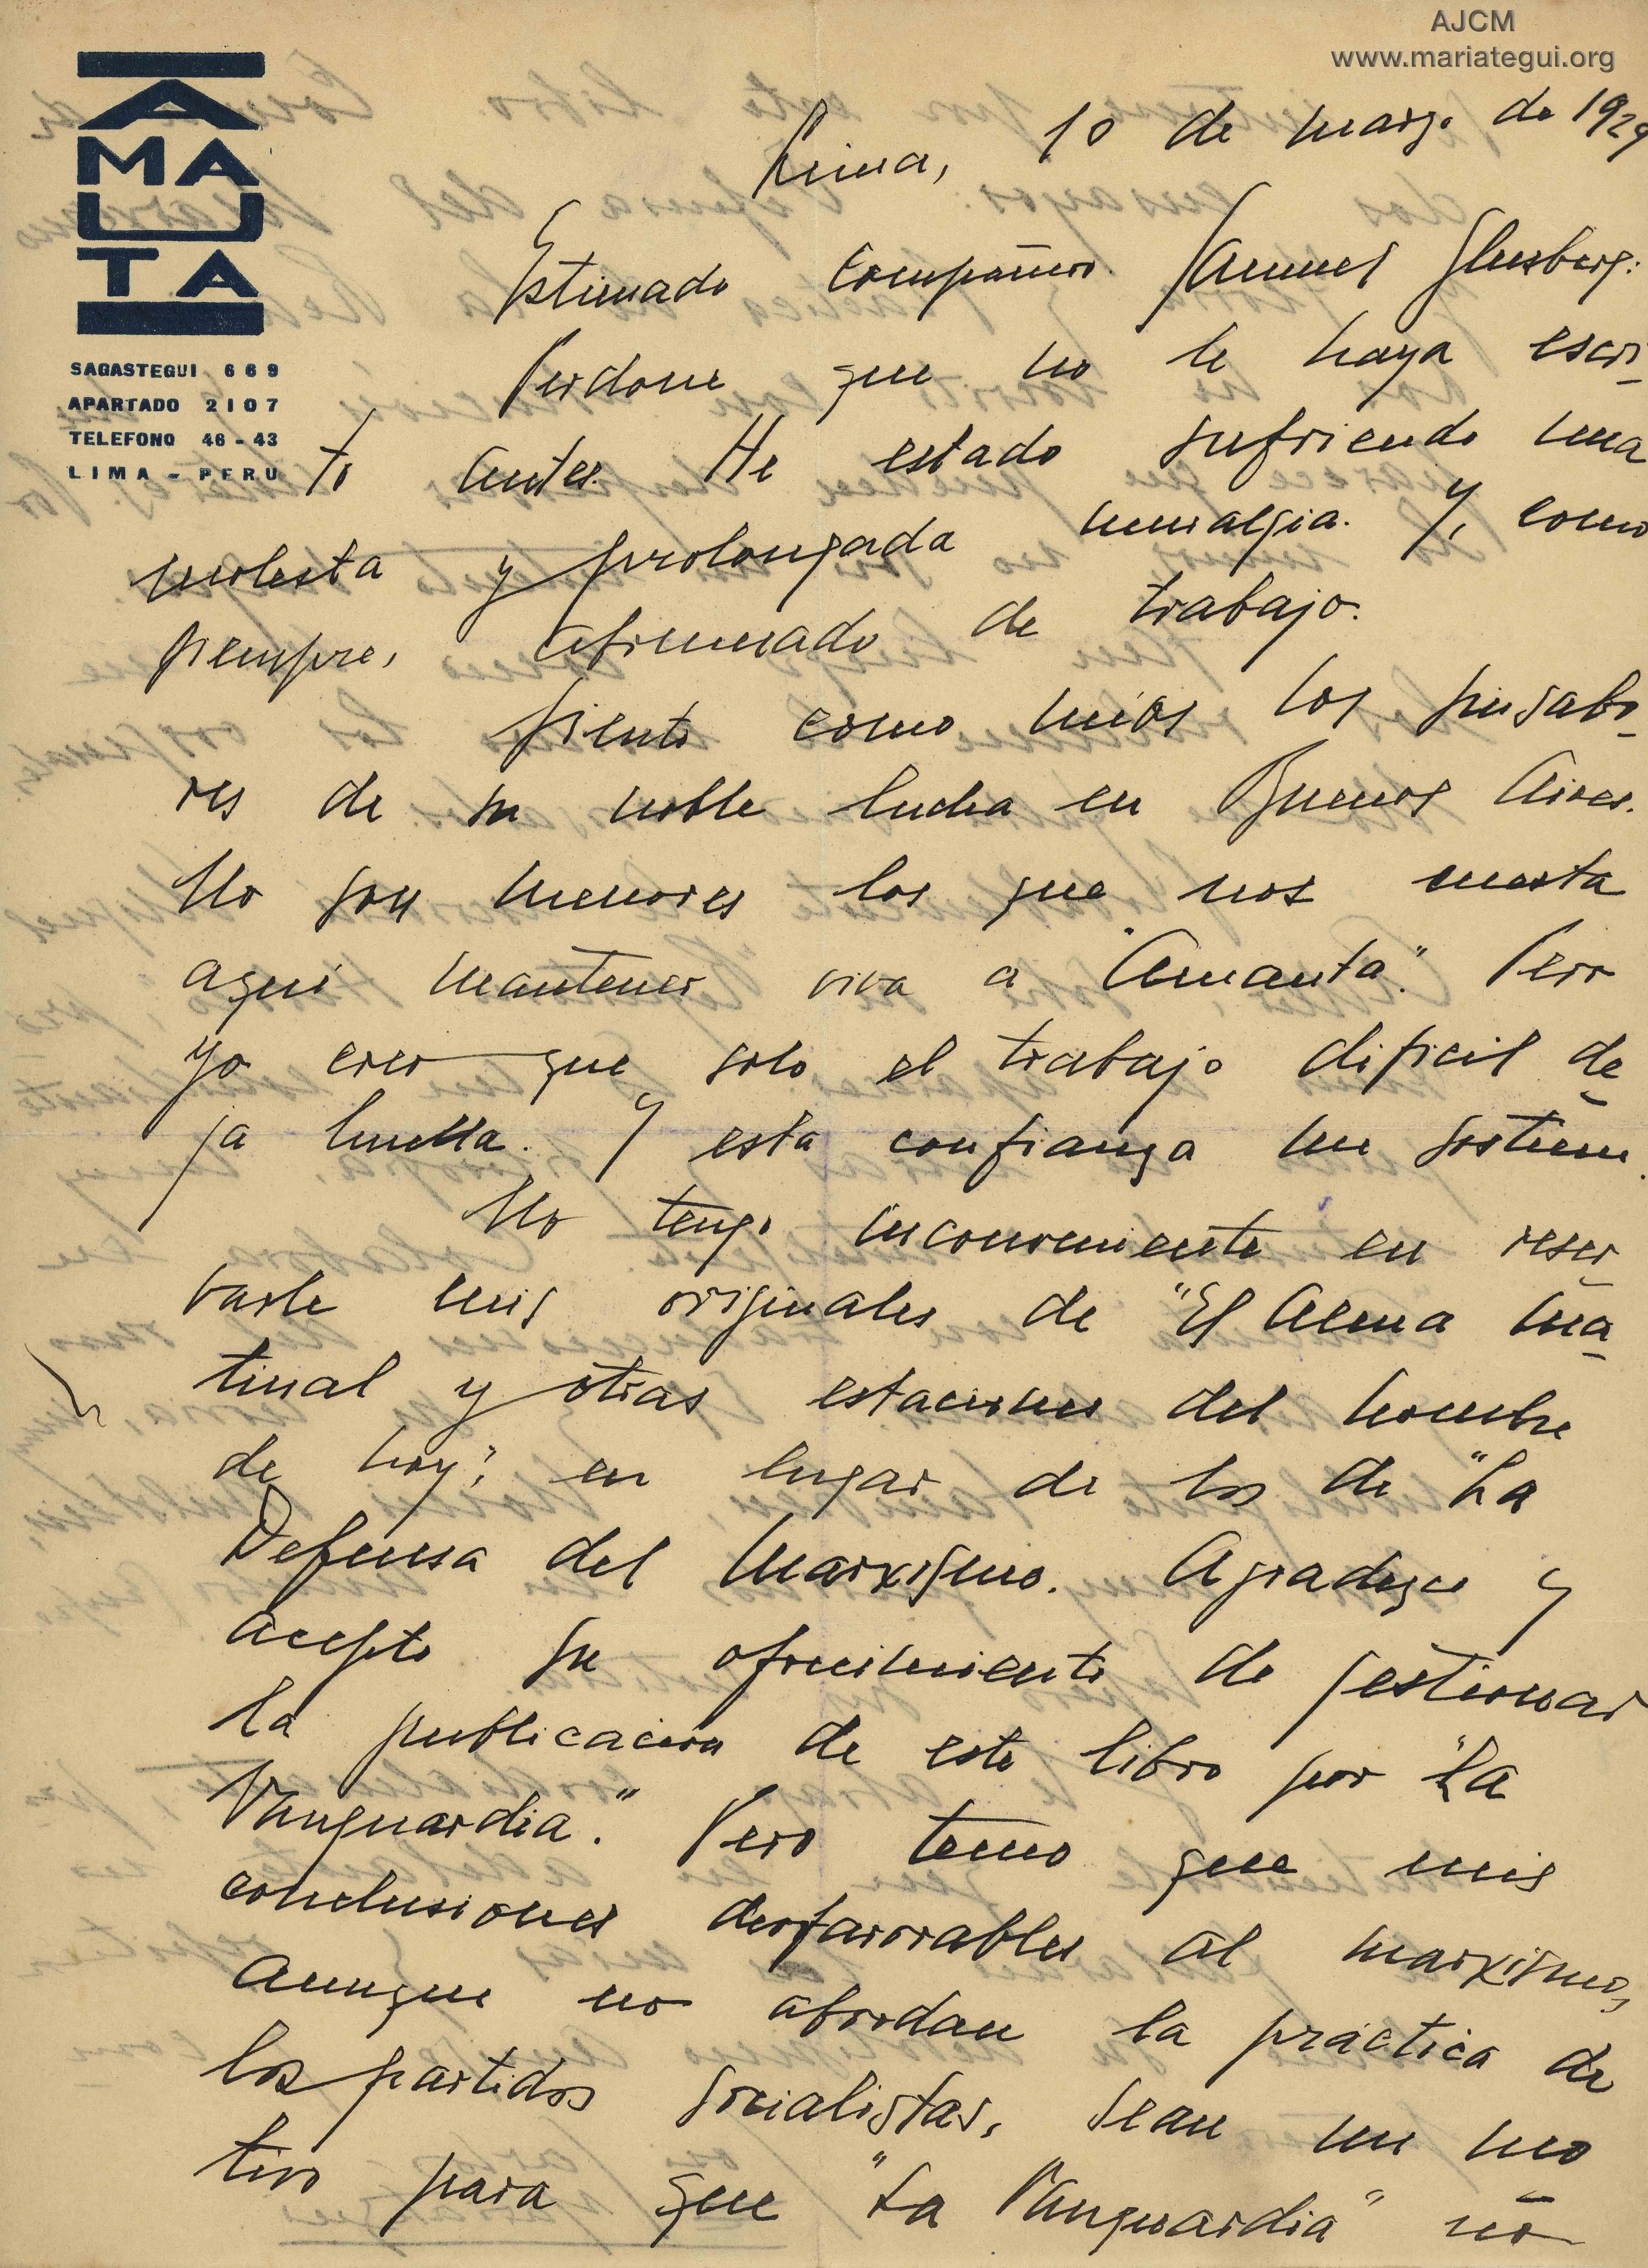 AJCM
www.mariategui.org
AMAUTA
SAGASTEGUI 669
APARTADO 2107
TELEFONO 46-43
LIMA - PERU
Lima, 10 de marzo de 1929
Estimado compañero Samuel Glusberg:
Perdone que no le haya escri-
to antes. He estado sufriendo una
molesta y prolongada neuralgia. Y, como
siempre, abrumado de trabajo.
Siento como mios los sinsabo-
res de su noble lucha en Buenos Aires.
No son menores los que nos cuesta
aqui mantener viva a "Amauta". Pero
yo creo que solo el trabajo dificil de-
ja huella. Y esta confianza me sostiene.
No tengo inconveniente en reser-
varle mis originales de "El Alma Ma-
tinal y otras estaciones del hombre
de hoy", en lugar de los de "La
Defensa del Marxismo. Agradezco y
acepto su ofrecimiento de gestionar
la publicacion de este libro por "La
Vanguardia." Pero temo que mis
conclusiones desfavorables al marxismo,
aunque no abordan la práctica de
los partidos socialistas, sean un mo-
tivo para que "La Vanguardia" no